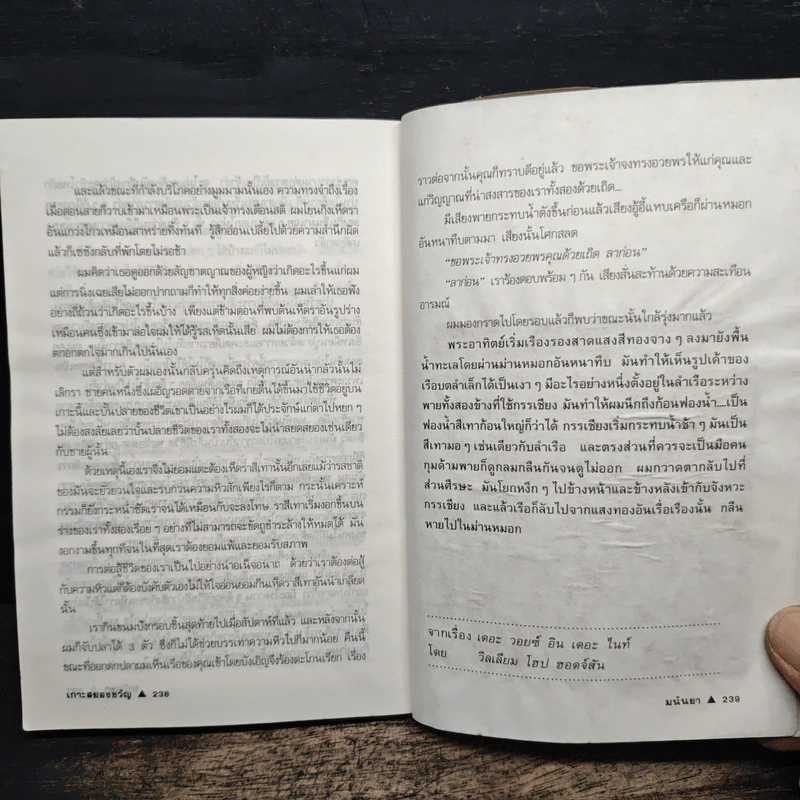 และแล้วขณะที่กำลังบริโภคอย่างมูมมามนั้นเอง ความทรงจำถึงเรื่อง
เมื่อตอนสายก็วาบเข้ามาเหมือนพระเป็นเจ้าทรงเตือนสติ ผมโยนกิ่งเห็ดรา
อันแกว่งไกวเหมือนสาหร่ายทิ้งทันที รู้สึกอ่อนเปลี้ยไปด้วยความสำนึกผิด
แล้วก็เซซังกลับที่พักโดยไม่รอช้า
ผมคิดว่าเธอดูออกด้วยสัญชาตญาณของผู้หญิงว่าเกิดอะไรขึ้นแก่ผม
แต่การนิ่งเฉยเสียไม่ออกปากถามก็ทำให้ทุกสิ่งค่อยง่ายขึ้น ผมเล่าให้เธอฟัง
อย่างถี่ถ้วนว่าเกิดอะไรขึ้นบ้าง เพียงแต่ข้ามตอนที่พบต้นเห็ดราอันรูปร่าง
เหมือนคนซึ่งเข้ามาล่อใจผมให้ได้รู้รสเห็ดนั้นเสีย ผมไม่ต้องการให้เธอต้อง
ตกอกตกใจมากเกินไปนั่นเอง
แต่สำหรับตัวผมเองนั้นกลับครุ่นคิดถึงเหตุการณ์อันน่ากลัวนั้นไม่
เลิกรา ชายคนหนึ่งซึ่งเผอิญรอดตายจากเรือที่เกยตื้นได้ขึ้นมาใช้ชีวิตอยู่บน
เกาะนี้และบั้นปลายของชีวิตเขาเป็นอย่างไรผมก็ได้ประจักษ์แก่ตาไปหยก ๆ
ไม่ต้องสงสัยเลยว่าบั้นปลายชีวิตของเราทั้งสองจะไม่น่าสยดสยองเช่นเดียว
กับชายผู้นั้น
ด้วยเหตุนี้เองเราจึงไม่ยอมแตะต้องเห็ดราสีเทานั้นอีกเลยแม้ว่ารสชาติ
ของมันจะยั่วยวนใจและรบกวนความหิวสักเพียงไรก็ตาม กระนั้นเคราะห์
กรรมก็ยังกระหน่ำซัดเราจนได้เหมือนกับจะลงโทษ ราสีเทาเริ่มงอกขึ้นบน
ร่างของเราทั้งสองเรื่อย ๆ อย่างที่ไม่สามารถจะขัดถูชำระล้างให้หมดได้ มัน
งอกงามขึ้นทุกที่จนในที่สุดเราต้องยอมแพ้และยอมรับสภาพ
การต่อสู้ชีวิตของเราเป็นไปอย่างน่าอเน็จอนาถ ด้วยว่าเราต้องต่อสู้
กับความหิวแต่ก็ต้องบังคับตัวเองไม่ให้ใจอ่อนยอมกินเห็ดราสีเทาอันน่าเกลียด
นั้น
เรากินขนมปังกรอบชิ้นสุดท้ายไปเมื่อสัปดาห์ที่แล้ว และหลังจากนั้น
ผมก็จับปลาได้ 3 ตัว ซึ่งก็ไม่ได้ช่วยบรรเทาความหิวไปกี่มากน้อย คืนนี้
ขณะที่ออกตกปลาผมเห็นเรือของคุณเข้าโดยบังเอิญจึงร้องตะโกนเรียก เรื่อง
เกาะสยองขวัญ ▲ 238
ราวต่อจากนั้นคุณก็ทราบดีอยู่แล้ว ขอพระเจ้าจงทรงอวยพรให้แก่คุณและ
แก่วิญญาณที่น่าสงสารของเราทั้งสองด้วยเถิด...
มีเสียงพายกระทบน้ำดังขึ้นก่อนแล้วเสียงอู้อี้แหบเครือก็ผ่านหมอก
อันหนาทึบตามมา เสียงนั้นโศกสลด
“ขอพระเจ้าทรงอวยพรคุณด้วยเถิด ลาก่อน”
“ลาก่อน” เราร้องตอบพร้อม ๆ กัน เสียงสั่นสะท้านด้วยความสะเทือน
อารมณ์
ผมมองกราดไปโดยรอบแล้วก็พบว่าขณะนั้นใกล้รุ่งมากแล้ว
พระอาทิตย์เริ่มเรืองรองสาดแสงสีทองจาง ๆ ลงมายังพื้น
น้ำทะเลโดยผ่านม่านหมอกอันหนาทึบ มันทำให้เห็นรูปเค้าของ
เรือบดลำเล็กได้เป็นเงา ๆ มีอะไรอย่างหนึ่งตั้งอยู่ในลำเรือระหว่าง
พายทั้งสองข้างที่ใช้กรรเชียง มันทำให้ผมนึกถึงก้อนฟองน้ำ....เป็น
ฟองน้ำสีเทาก้อนใหญ่ก็ว่าได้ กรรเชียงเริ่มกระทบน้ำช้า ๆ มันเป็น
สีเทามอ ๆ เช่นเดียวกับลำเรือ และตรงส่วนที่ควรจะเป็นมือคน
กุมด้ามพายก็ดูกลมกลืนกันจนดูไม่ออก ผมกวาดตากลับไปที่
ส่วนศีรษะ มันโยกหงึก ๆ ไปข้างหน้าและข้างหลังเข้ากับจังหวะ
กรรเชียง และแล้วเรือก็ลับไปจากแสงทองอันเรื่อเรืองนั้น กลืน
หายไปในม่านหมอก
จากเรื่อง เดอะ วอยซ์ อิน เดอะ ไนท์
โดย วิลเลียม โฮป ฮอดจ์สัน
มนันยา ▲ 239